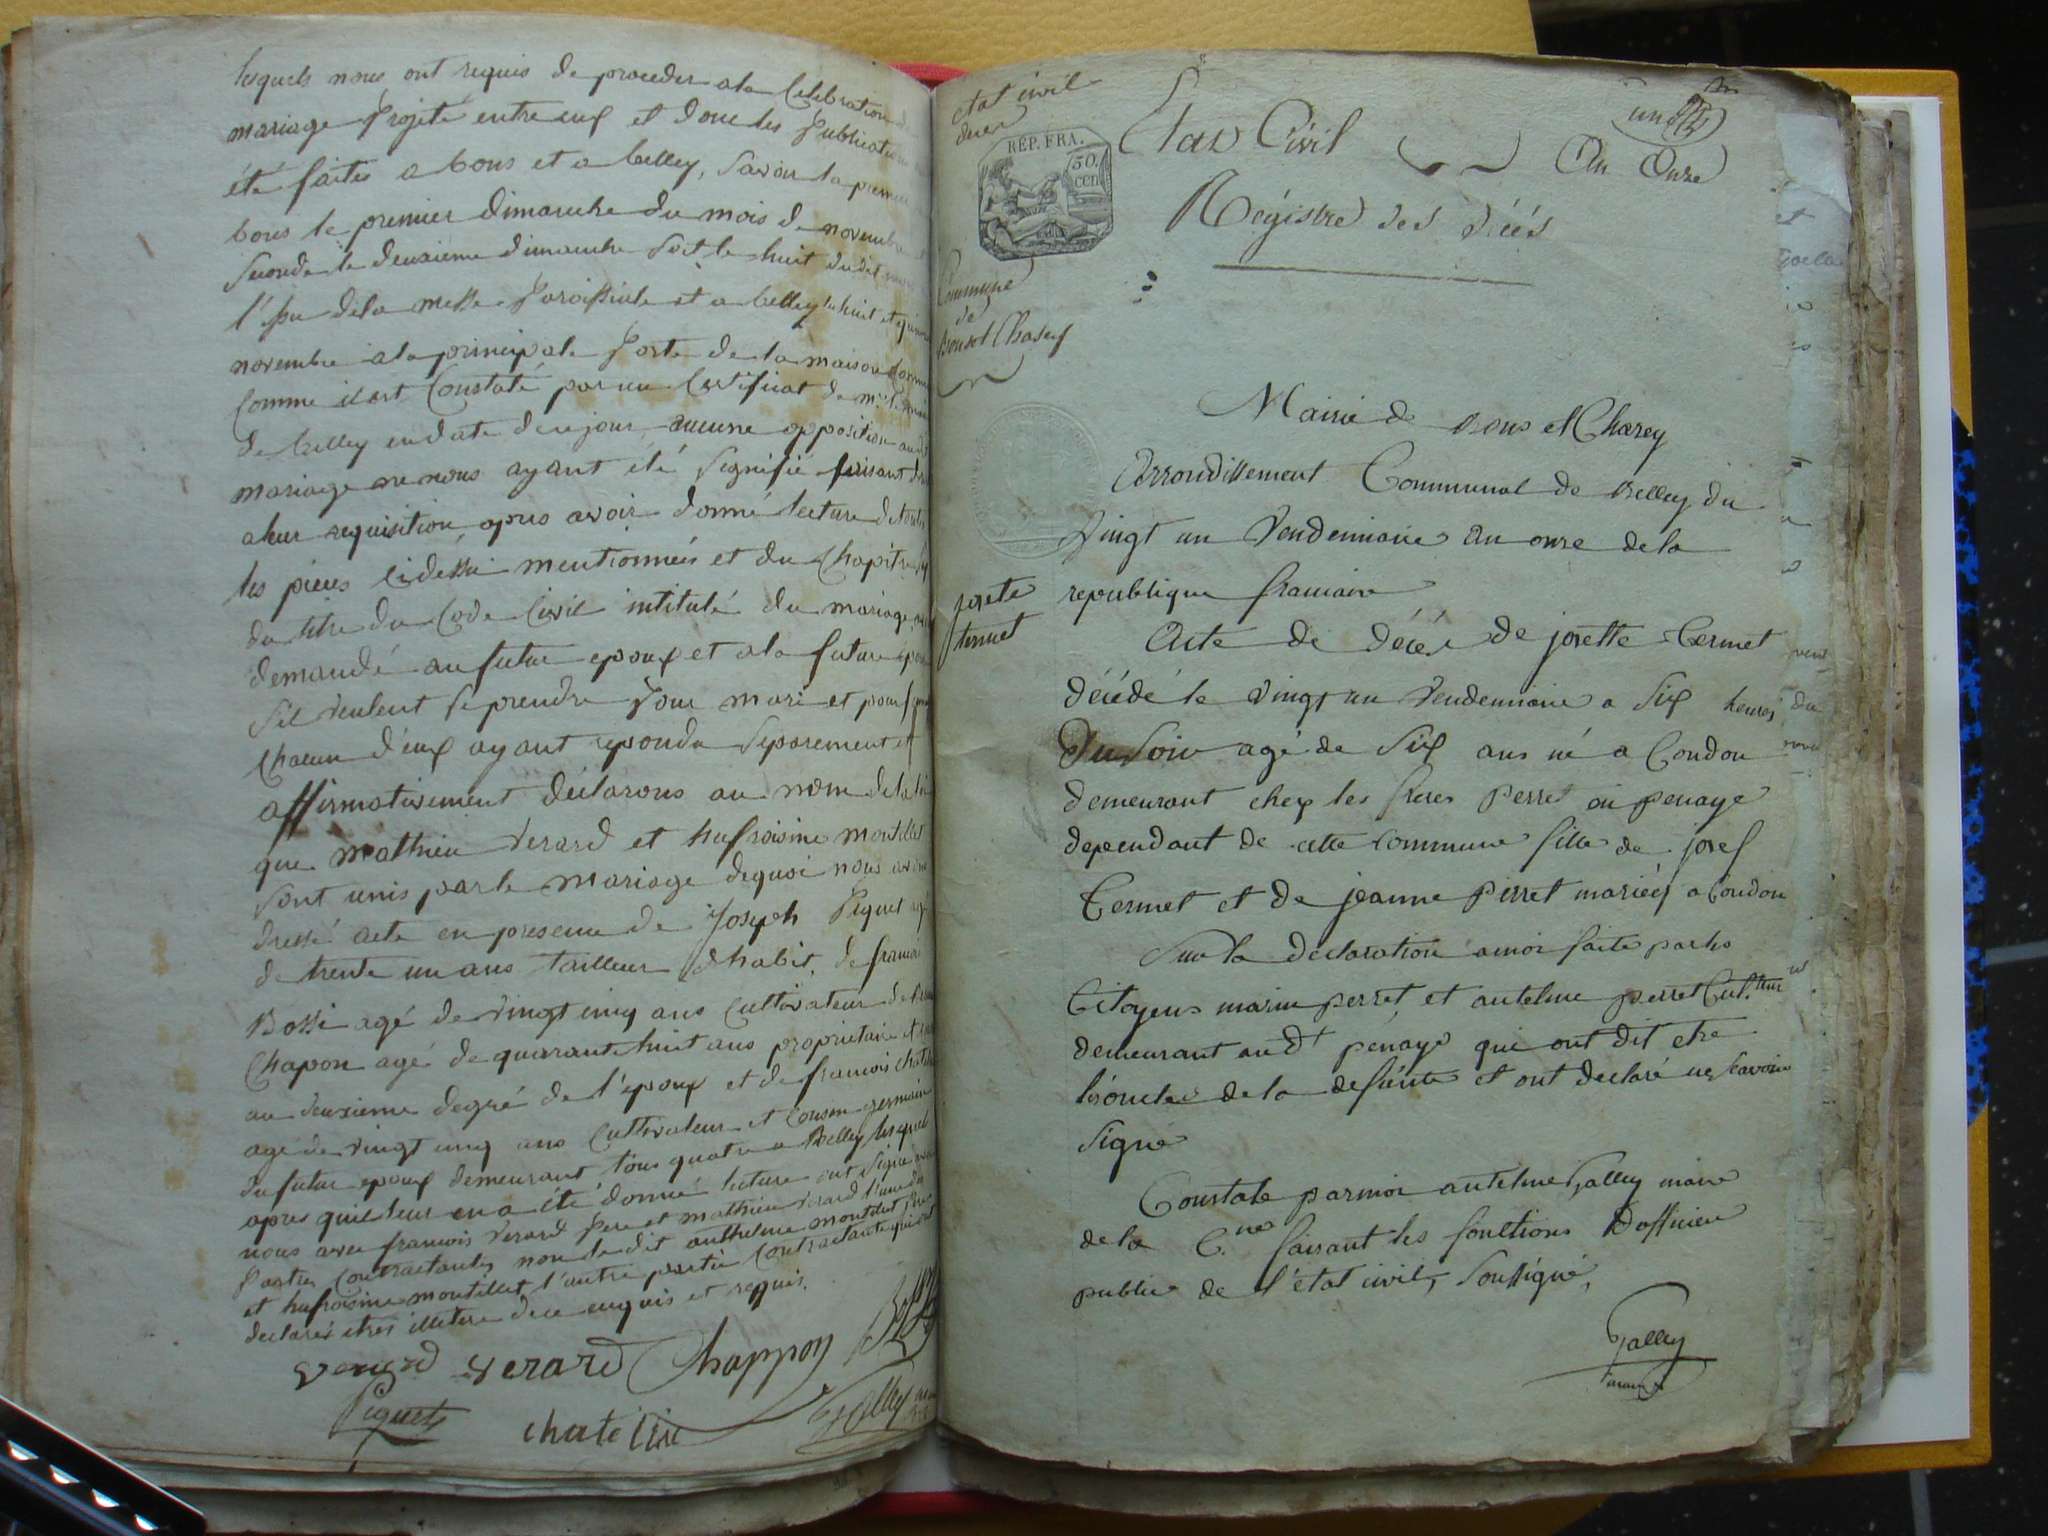 lesquels nous ont requis de proceder a la Celebration
mariage projeté entre eux et dont les publications
été faites a bons et a belley, Savoir la premiere
bons le premier dimanche du mois de novembre
Seconde le deuxieme dimanche Soit le huit dudit
l'issue de la messe paroissiale et a belley les huit et quinze
novembre a la principale porte de la maison Comm
Comme il est Constaté par un Certificat de mr. le maire
de belley en date de ce jour, aucune opposition audit
mariage ne nous ayant été Signifié faisant droit
a leur requisition, apres avoir donné lecture de toutes
les pieces cidessus mentionnées et du Chapitre Six
du titre du Code Civil intitulé du mariage,
demandé au futur epoux et a la future
S'il veulent se prendre pour mari et pour
Chacun d'eux ayant repondu Separement et
affirmativement déclarons au nom de la loi
que mathieu verard et hufroisine montillet
Sont unis par le mariage dequoi nous avons
dressé acte en presence de Joseph Piquet agé
de trente un ans tailleur d'habit, de francois
Bossi agé de vingt cinq ans Cultivateur de
Chapon agé de quarante huit ans proprietaire et
au deuxieme degré de l'epoux et de francois chatel
agé de vingt cinq ans Cultivateur et Cousin germain
du futur epoux demeurant tous quatre a Belley lesquels
apres qu'il leur en a été donné lecture ont Signé avec
nous avec francois verard pere et mathieu verard l'une des
parties Contractantes, non le dit anthelme montillet pere
et hufroisine montillet l'autre partie Contractante qui ont
declarés etres illetere de ce enquis et requis.
verard verard Chappon
Piquet chatelin Galley
etat civil
deces
RÉP. FRA.
50.
cen
Etat Civil An Onze
Régistre des décés
Commune
de
bonsot Chasey
Mairie de bons et Charey
Arrondissement Communal de Belley du
vingt un Vendemiaire an onze de la
republique francaise
josette
termet
Acte de décés de josette Termet
décédé le vingt un Vendemiaire a Six heures
du Soir agé de Six ans né a Condon
demeurant chez les freres Perret au penaye
dependant de cette Commune fille de josef
Termet et de jeanne Perret mariés a Condon
Sur la déclaration a moi faite par les
Citoyens marin perret, et antelme perret Cult.teurs
demeurant au dt penaye qui ont dit etre
les oncles de la defunte et ont declaré ne Savoir
Signé
Constaté par moi antelme Galley maire
de la C.ne faisant les fonctions D'officier
public de l'état civil, Soussigné,
Galley
maire